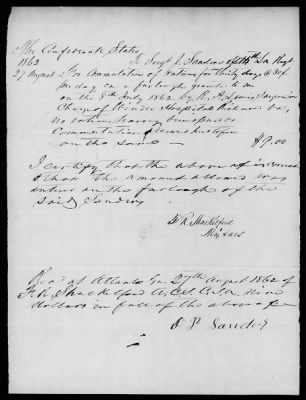 The Confederate States
1862 To Sergt J. Sanders 14th La Regt
27 August - For Commutation of rations for thirty days @ 30¢
per day on a furlough granted to me
on the 8th July 1862, by R. H. Surgeon in
Charge of Hospital Richmond Va,
no rations having been issued
Commutation
on the same — $9.00
I certify that the above a/c is correct
& that the amount allowed was
entered on the furlough of the
said Sanders
F. R. Shackelford
Maj & ACS
Recd at Atlanta Ga. 27th August 1862 of
F. R. Shackelford A.C.S. C.S.A. nine
dollars in full of the above a/c
J. P. Sanders